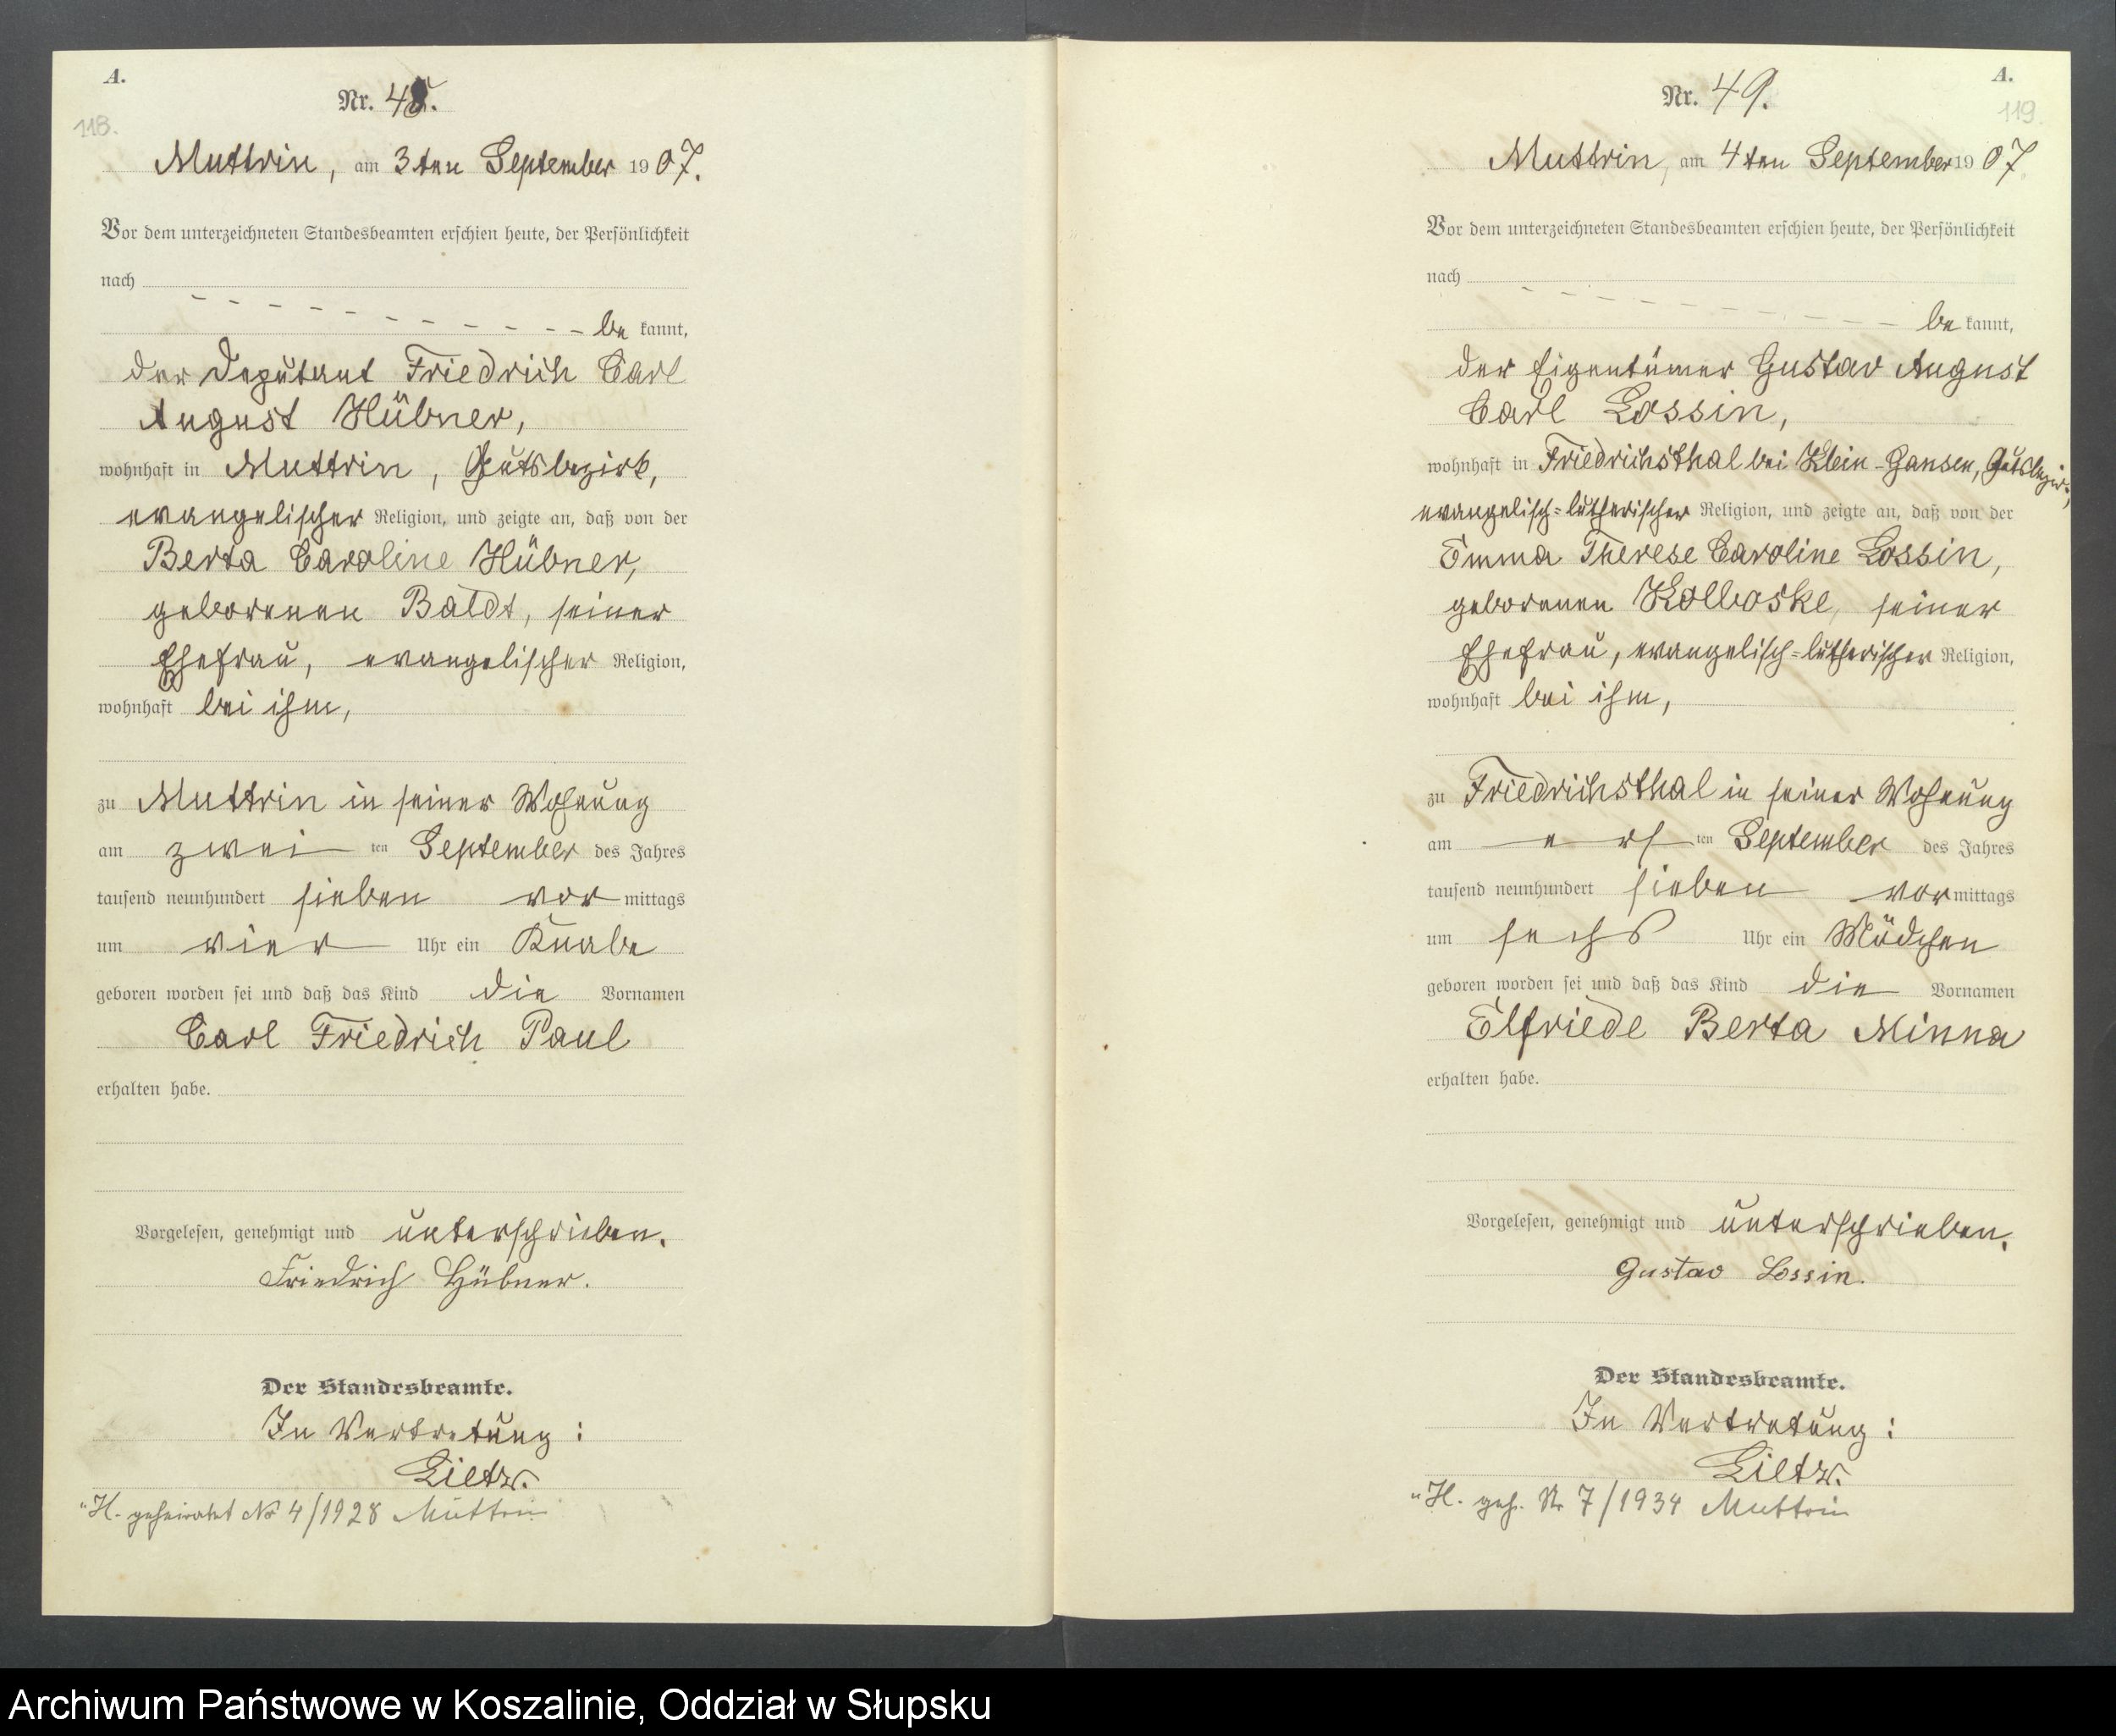 A.
Nr. 48.
118.
Muttrin, am 3ten September 1907.
Vor dem unterzeichneten Standesbeamten erschien heute, der Persönlichkeit
nach
be kannt,
der Deputant Friedrich Carl
August Hübner,
wohnhaft in Muttrin, Gutsbezirk,
evangelischer Religion, und zeigte an, daß von der
Berta Caroline Hübner,
geborenen Baldt, seiner
Ehefrau, evangelischer Religion,
wohnhaft bei ihm,
zu Muttrin in seiner Wohnung
am zwei ten September des Jahres
tausend neunhundert sieben vor mittags
um vier Uhr ein Knabe
geboren worden sei und daß das Kind die Vornamen
Carl Friedrich Paul
erhalten habe.
Vorgelesen, genehmigt und unterschrieben.
Friedrich Hübner.
Der Standesbeamte.
In Vertretung:
Lietz.
"H. geheiratet No 4/1928 Muttrin
A.
Nr. 49.
119.
Muttrin, am 4ten September 1907
Vor dem unterzeichneten Standesbeamten erschien heute, der Persönlichkeit
nach
be kannt,
der Eigentümer Gustav August
Carl Lossin,
wohnhaft in Friedrichsthal bei Klein-Gansen, Gutsbezirk,
evangelisch=lutherischer Religion, und zeigte an, daß von der
Emma Therese Caroline Lossin,
geborenen Kolboske, seiner
Ehefrau, evangelisch=lutherischer Religion,
wohnhaft bei ihm,
zu Friedrichsthal in seiner Wohnung
am ers ten September des Jahres
tausend neunhundert sieben vor mittags
um sechs Uhr ein Mädchen
geboren worden sei und daß das Kind die Vornamen
Elfriede Berta Minna
erhalten habe.
Vorgelesen, genehmigt und unterschrieben.
Gustav Lossin.
Der Standesbeamte.
In Vertretung:
Lietz.
"H. geh. Nr 7/1934 Muttrin
Archiwum Państwowe w Koszalinie, Oddział w Słupsku